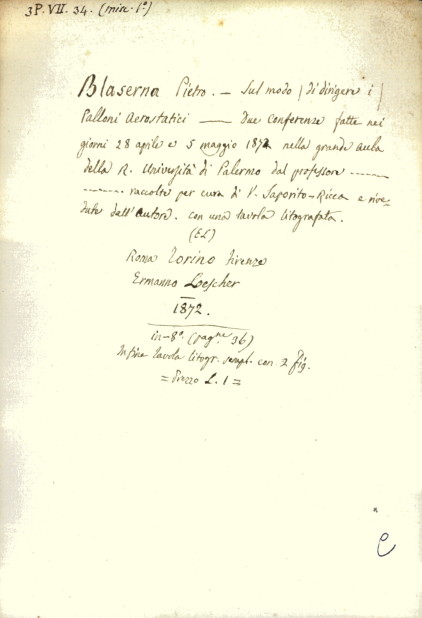 3P. VII. 34. (misc. 1º)
Blaserna Pietro. — Sul modo | di dirigere i |
Palloni Aerostatici —— Due Conferenze fatte nei
giorni 28 aprile e 5 maggio 1872 nella grande aula
della R. Università di Palermo dal professore ------
------- raccolte per cura di V. Saporito-Ricca e rive-
dute dall'autore. con una tavola litografata.
(EL)
Roma Torino Firenze
Ermanno Loescher
1872.
in-8º. (pagne 36)
In fine tavola litogr. sempl. con 2 fig.
= Prezzo L. 1 =
e